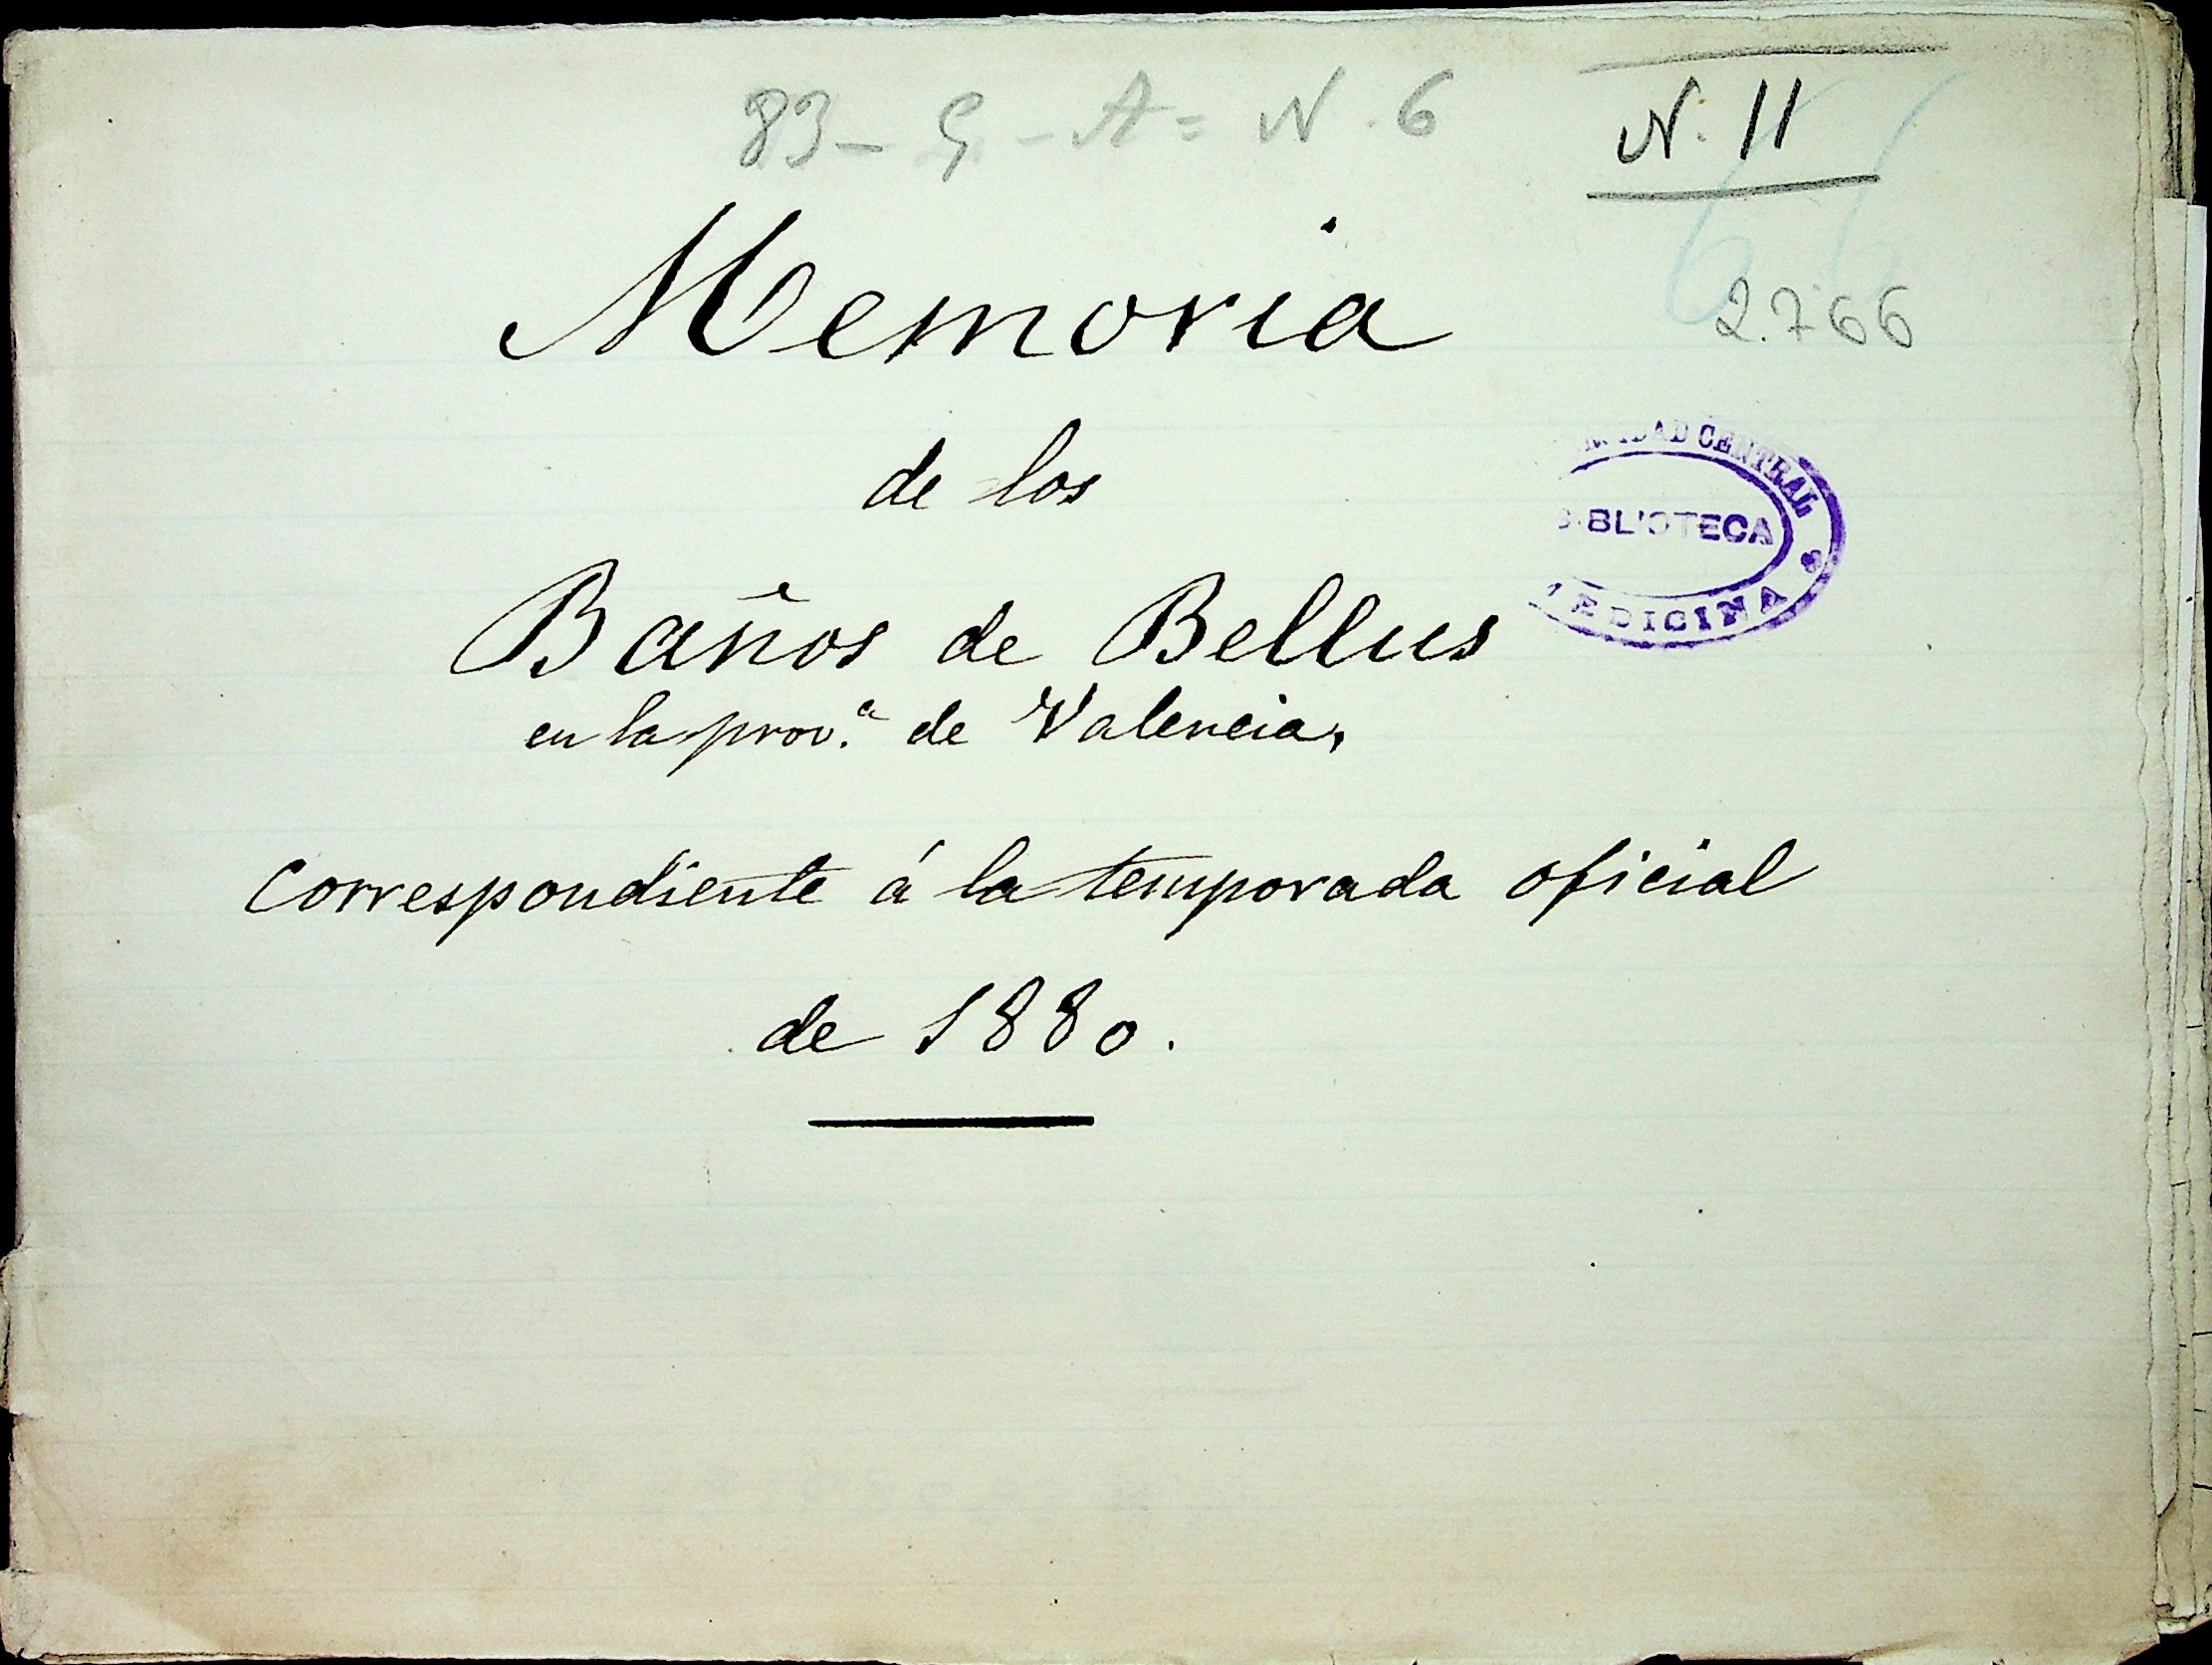 83 - G - A = N. 6
N. 11
66
2.766
Memoria
de los
Baños de Bellus
en la prov.ª de Valencia,
correspondiente á la temporada oficial
de 1880.
CENTRAL
BIBLIOTECA
MEDICINA